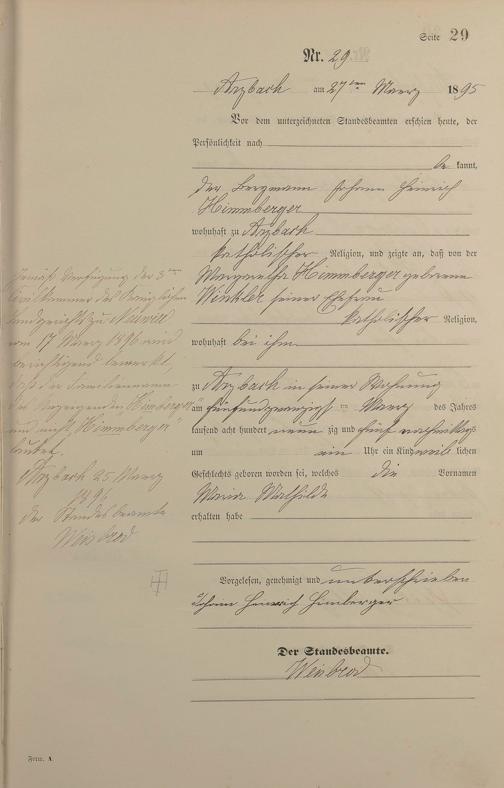 Seite 29
Nr. 29
Arzbach am 27ten Maerz 1895
Vor dem unterzeichneten Standesbeamten erschien heute, der
Persönlichkeit nach
be kannt,
der Bergmann Johann Heinrich
Himmberger
wohnhaft zu Arzbach
katholischer Religion, und zeigte an, daß von der
Margaretha Himmberger geborene
Winkler seiner Ehefrau
katholischer Religion,
wohnhaft bei ihm
zu Arzbach in seiner Wohnung
am fünfundzwanzigsten Maerz des Jahres
tausend acht hundert neun zig und fünf nachmittags
um ein Uhr ein Kind weib lichen
Geschlechts geboren worden sei, welches die Vornamen
Maria Mathilde
erhalten habe
Vorgelesen, genehmigt und unterschrieben
Johann Heinrich Himberger
Der Standesbeamte.
Weisbrod
Gemäß Verfügung der 3ten
Civilkammer des Königlichen
Landgerichts zu Neuwied
vom 17 März 1896 wird
berichtigend bemerkt,
daß der Familienname
des Anzeigenden "Himberger"
und nicht "Himmberger"
lautet.
Arzbach 25 Maerz
1896
der Standesbeamte
Weisbrod
Form. A